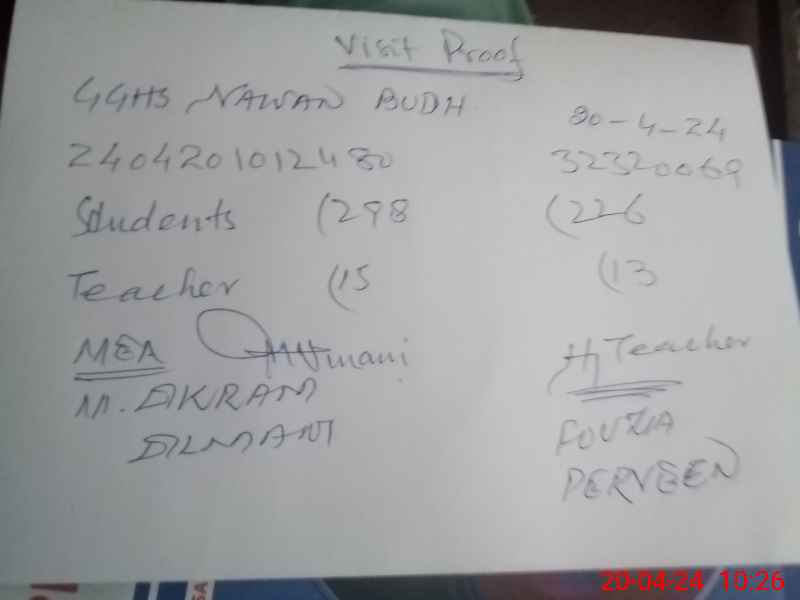 Visit Proof
GGHS NAWAN BUDH
20-4-24
2404201012480 32320069
Students (298 (226
Teacher (15 (13
MEA H/Teacher
M. AKRAM FOUZIA
PERVEEN
20-04-24 10:26